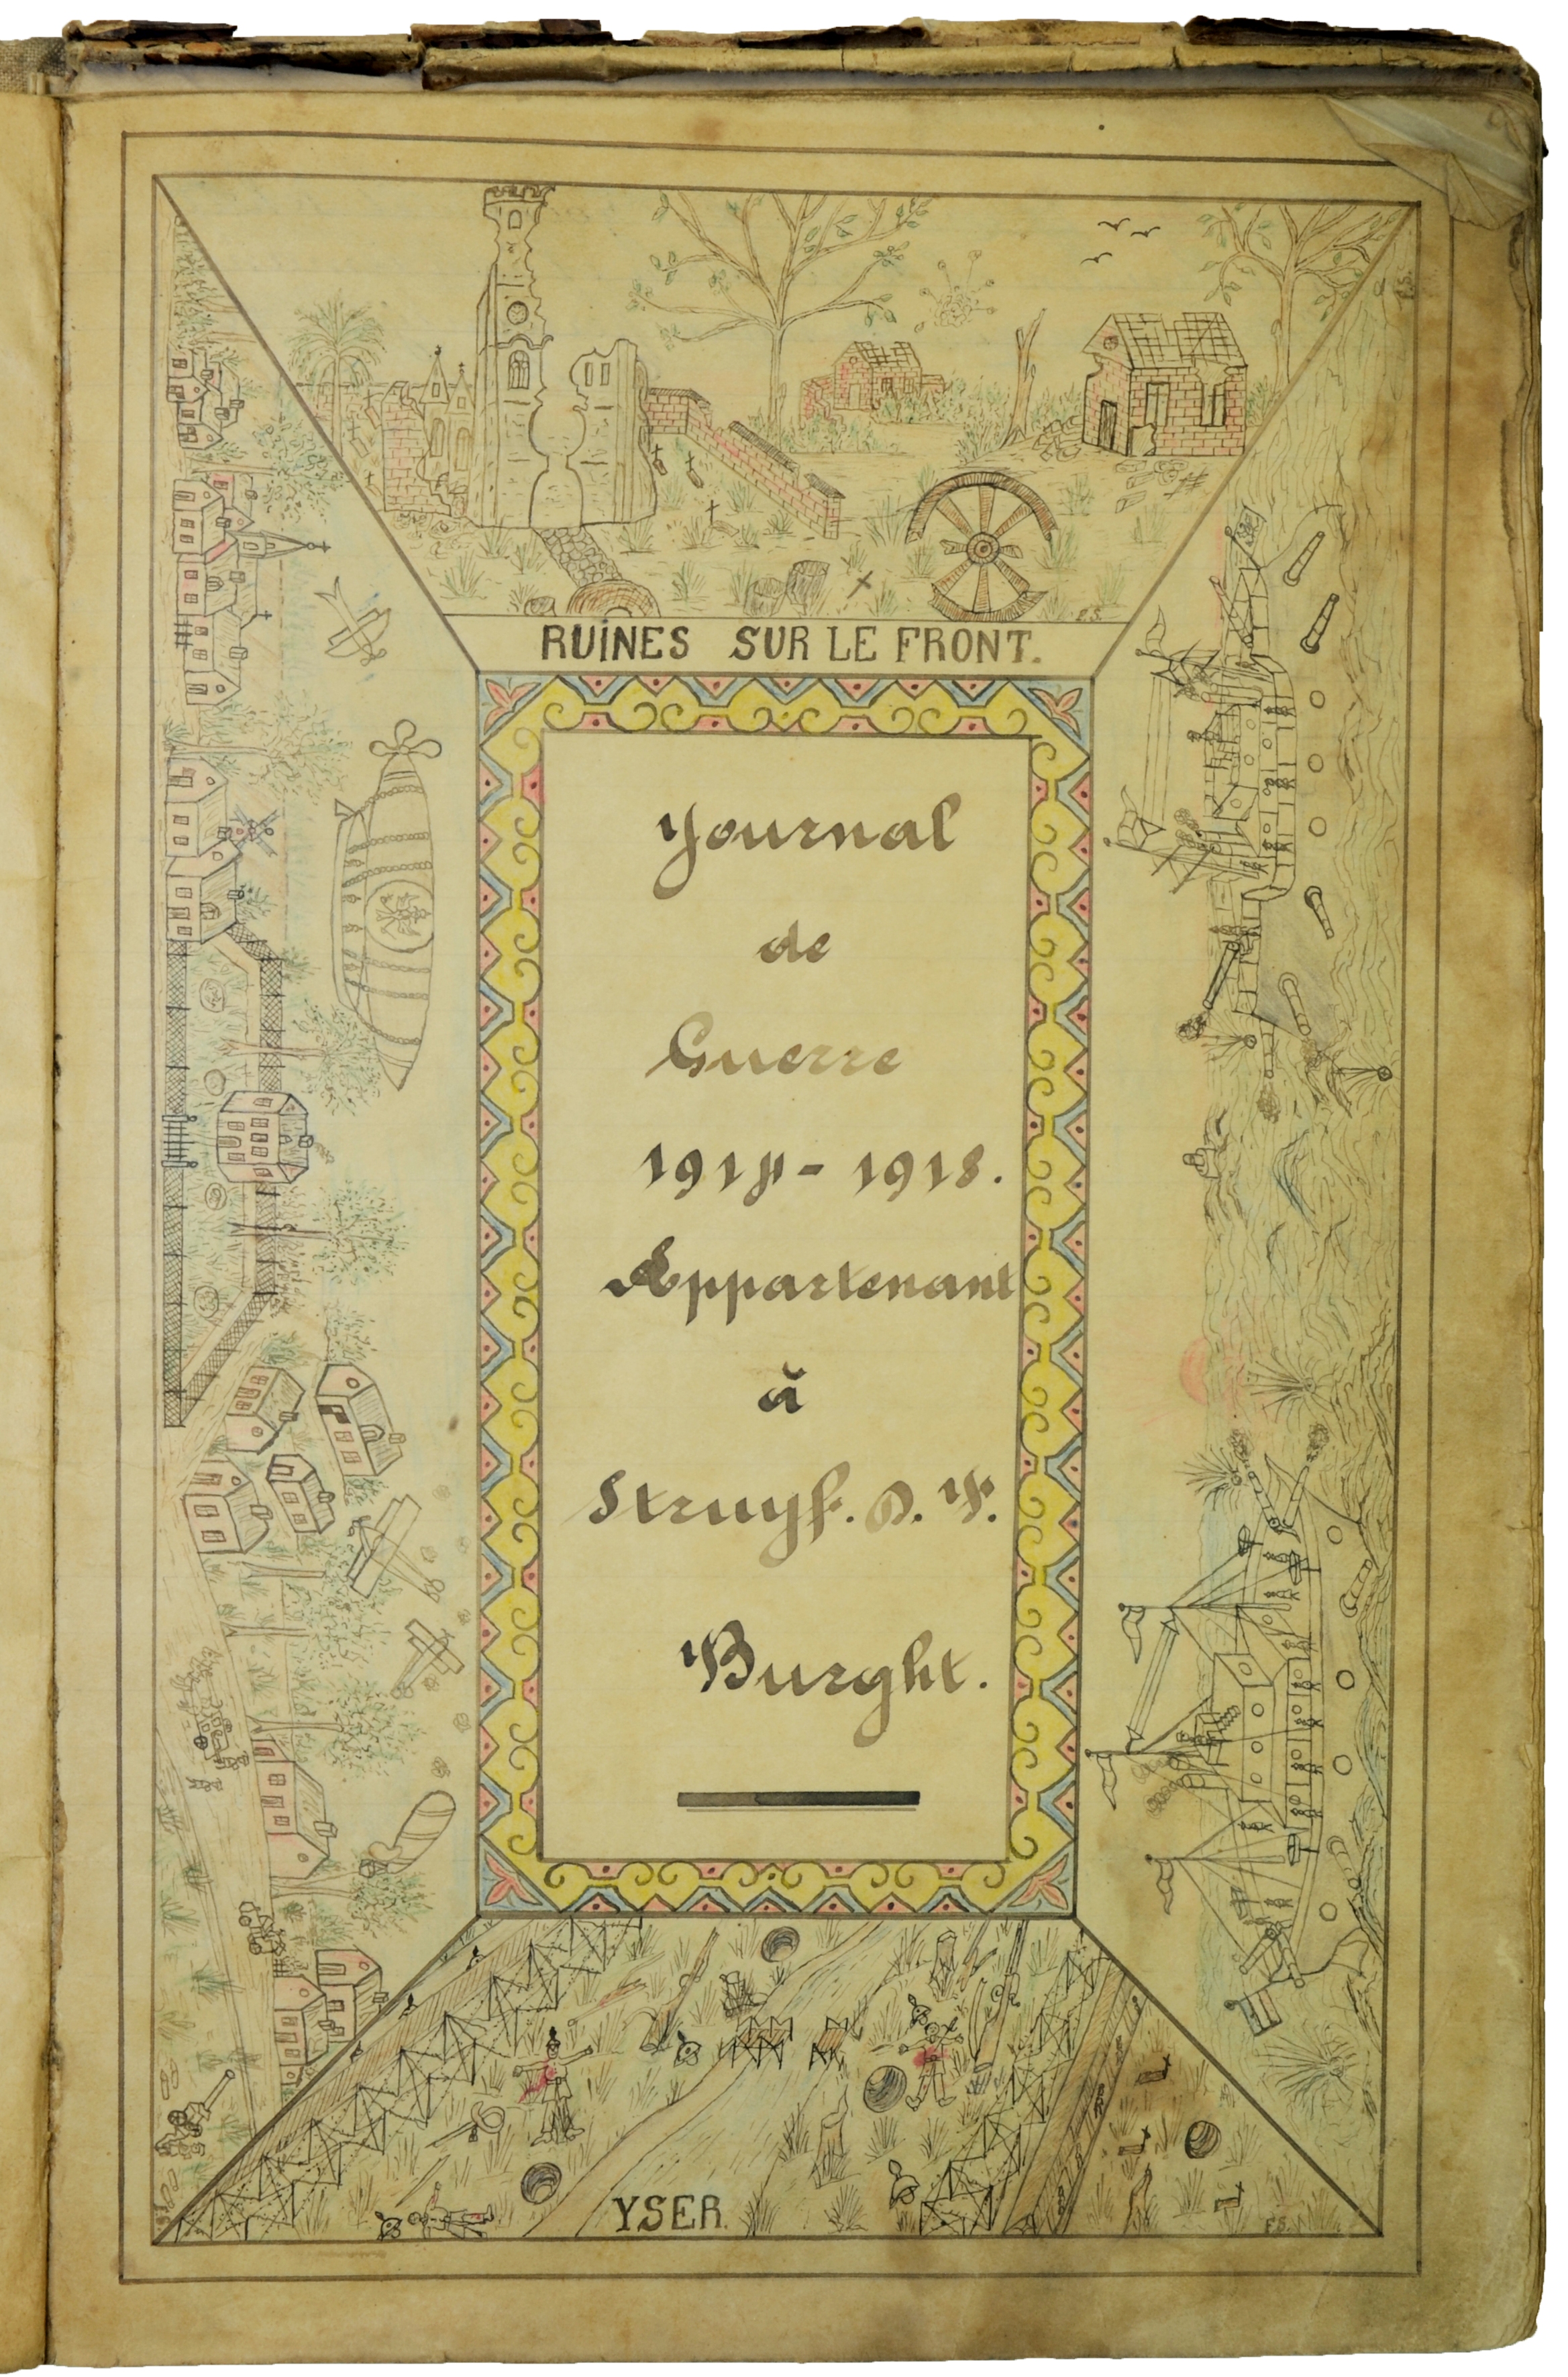 F.S.
RUINES SUR LE FRONT.
Journal
de
Guerre
1914 - 1918.
Appartenant
à
Struyf. D. F.
Burght.
YSER.
F.S.